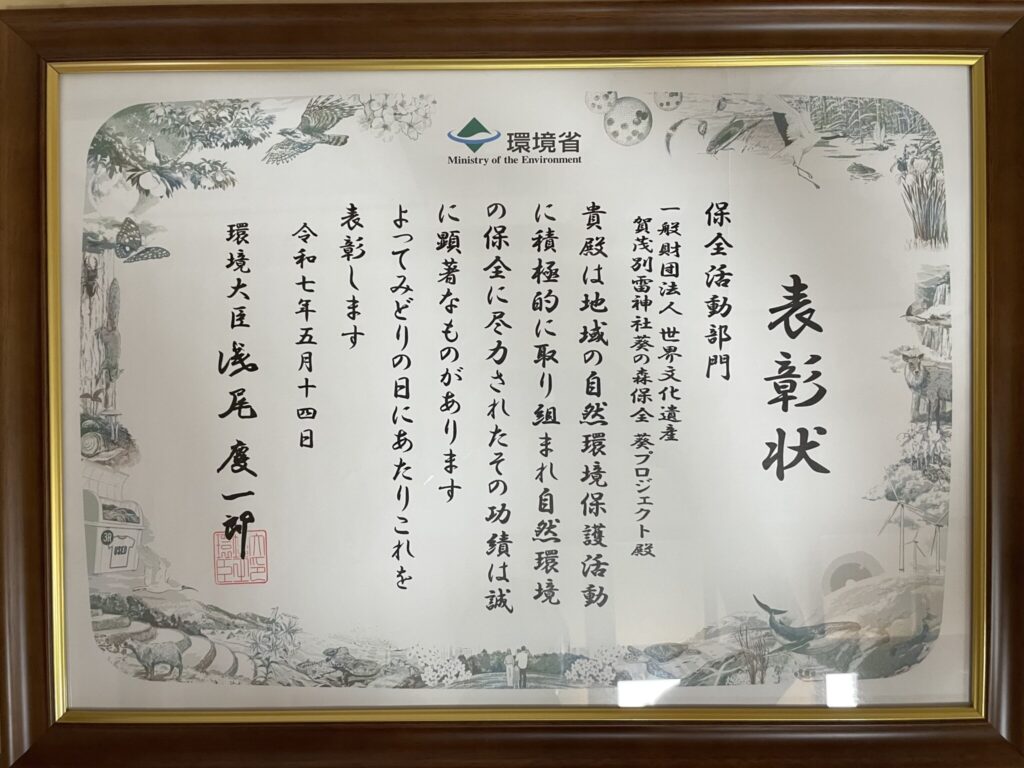 環境省
Ministry of the Environment
表彰状
保全活動部門
一般財団法人 世界文化遺産
賀茂別雷神社葵の森保全 葵プロジェクト殿
貴殿は地域の自然環境保護活動
に積極的に取り組まれ自然環境
の保全に尽力されたその功績は誠
に顕著なものがあります
よってみどりの日にあたりこれを
表彰します
令和七年五月十四日
環境大臣 浅尾慶一郎
USED